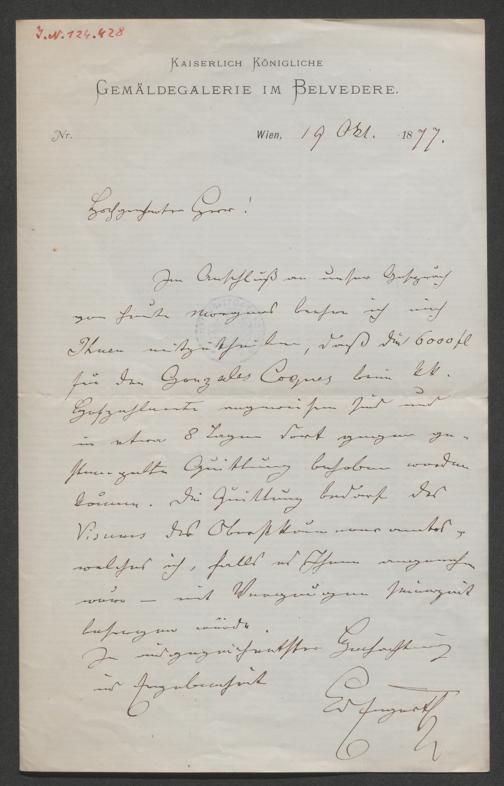 I.N. 124.428
KAISERLICH KÖNIGLICHE
GEMÄLDEGALERIE IM BELVEDERE.
Nr. Wien, 19 Okt. 1877.
Hochgeehrter Herr!
Im Anschluß an unser Gespräch
von heute Morgens beehre ich mich
Ihnen mitzutheilen, daß die 6000 fl
für den Gonzales Coques beim kk.
Hofzahlamte angewiesen sind und
in etwa 8 Tagen dort gegen ge-
stempelte Quittung behoben werden
können. Die Quittung bedarf des
Visums des Oberstkämmereramtes,
welches ich, falls es Ihnen angenehm
wäre — mit Vergnügen seinerzeit
besorgen würde.
In ausgezeichnetster Hochachtung
Ergebenheit
Ed Engerth